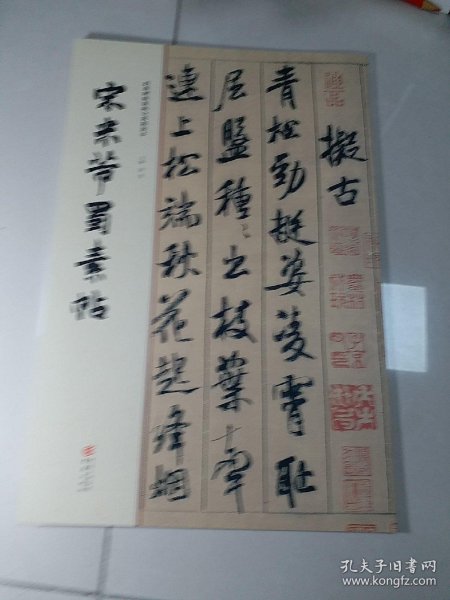 宋米芾蜀素帖
擬古
青松勁挺姿凌霄耻
屈盤種〻出枝葉牽
連上松端秋花起絳烟
孔夫子旧书网
www.kongfz.com